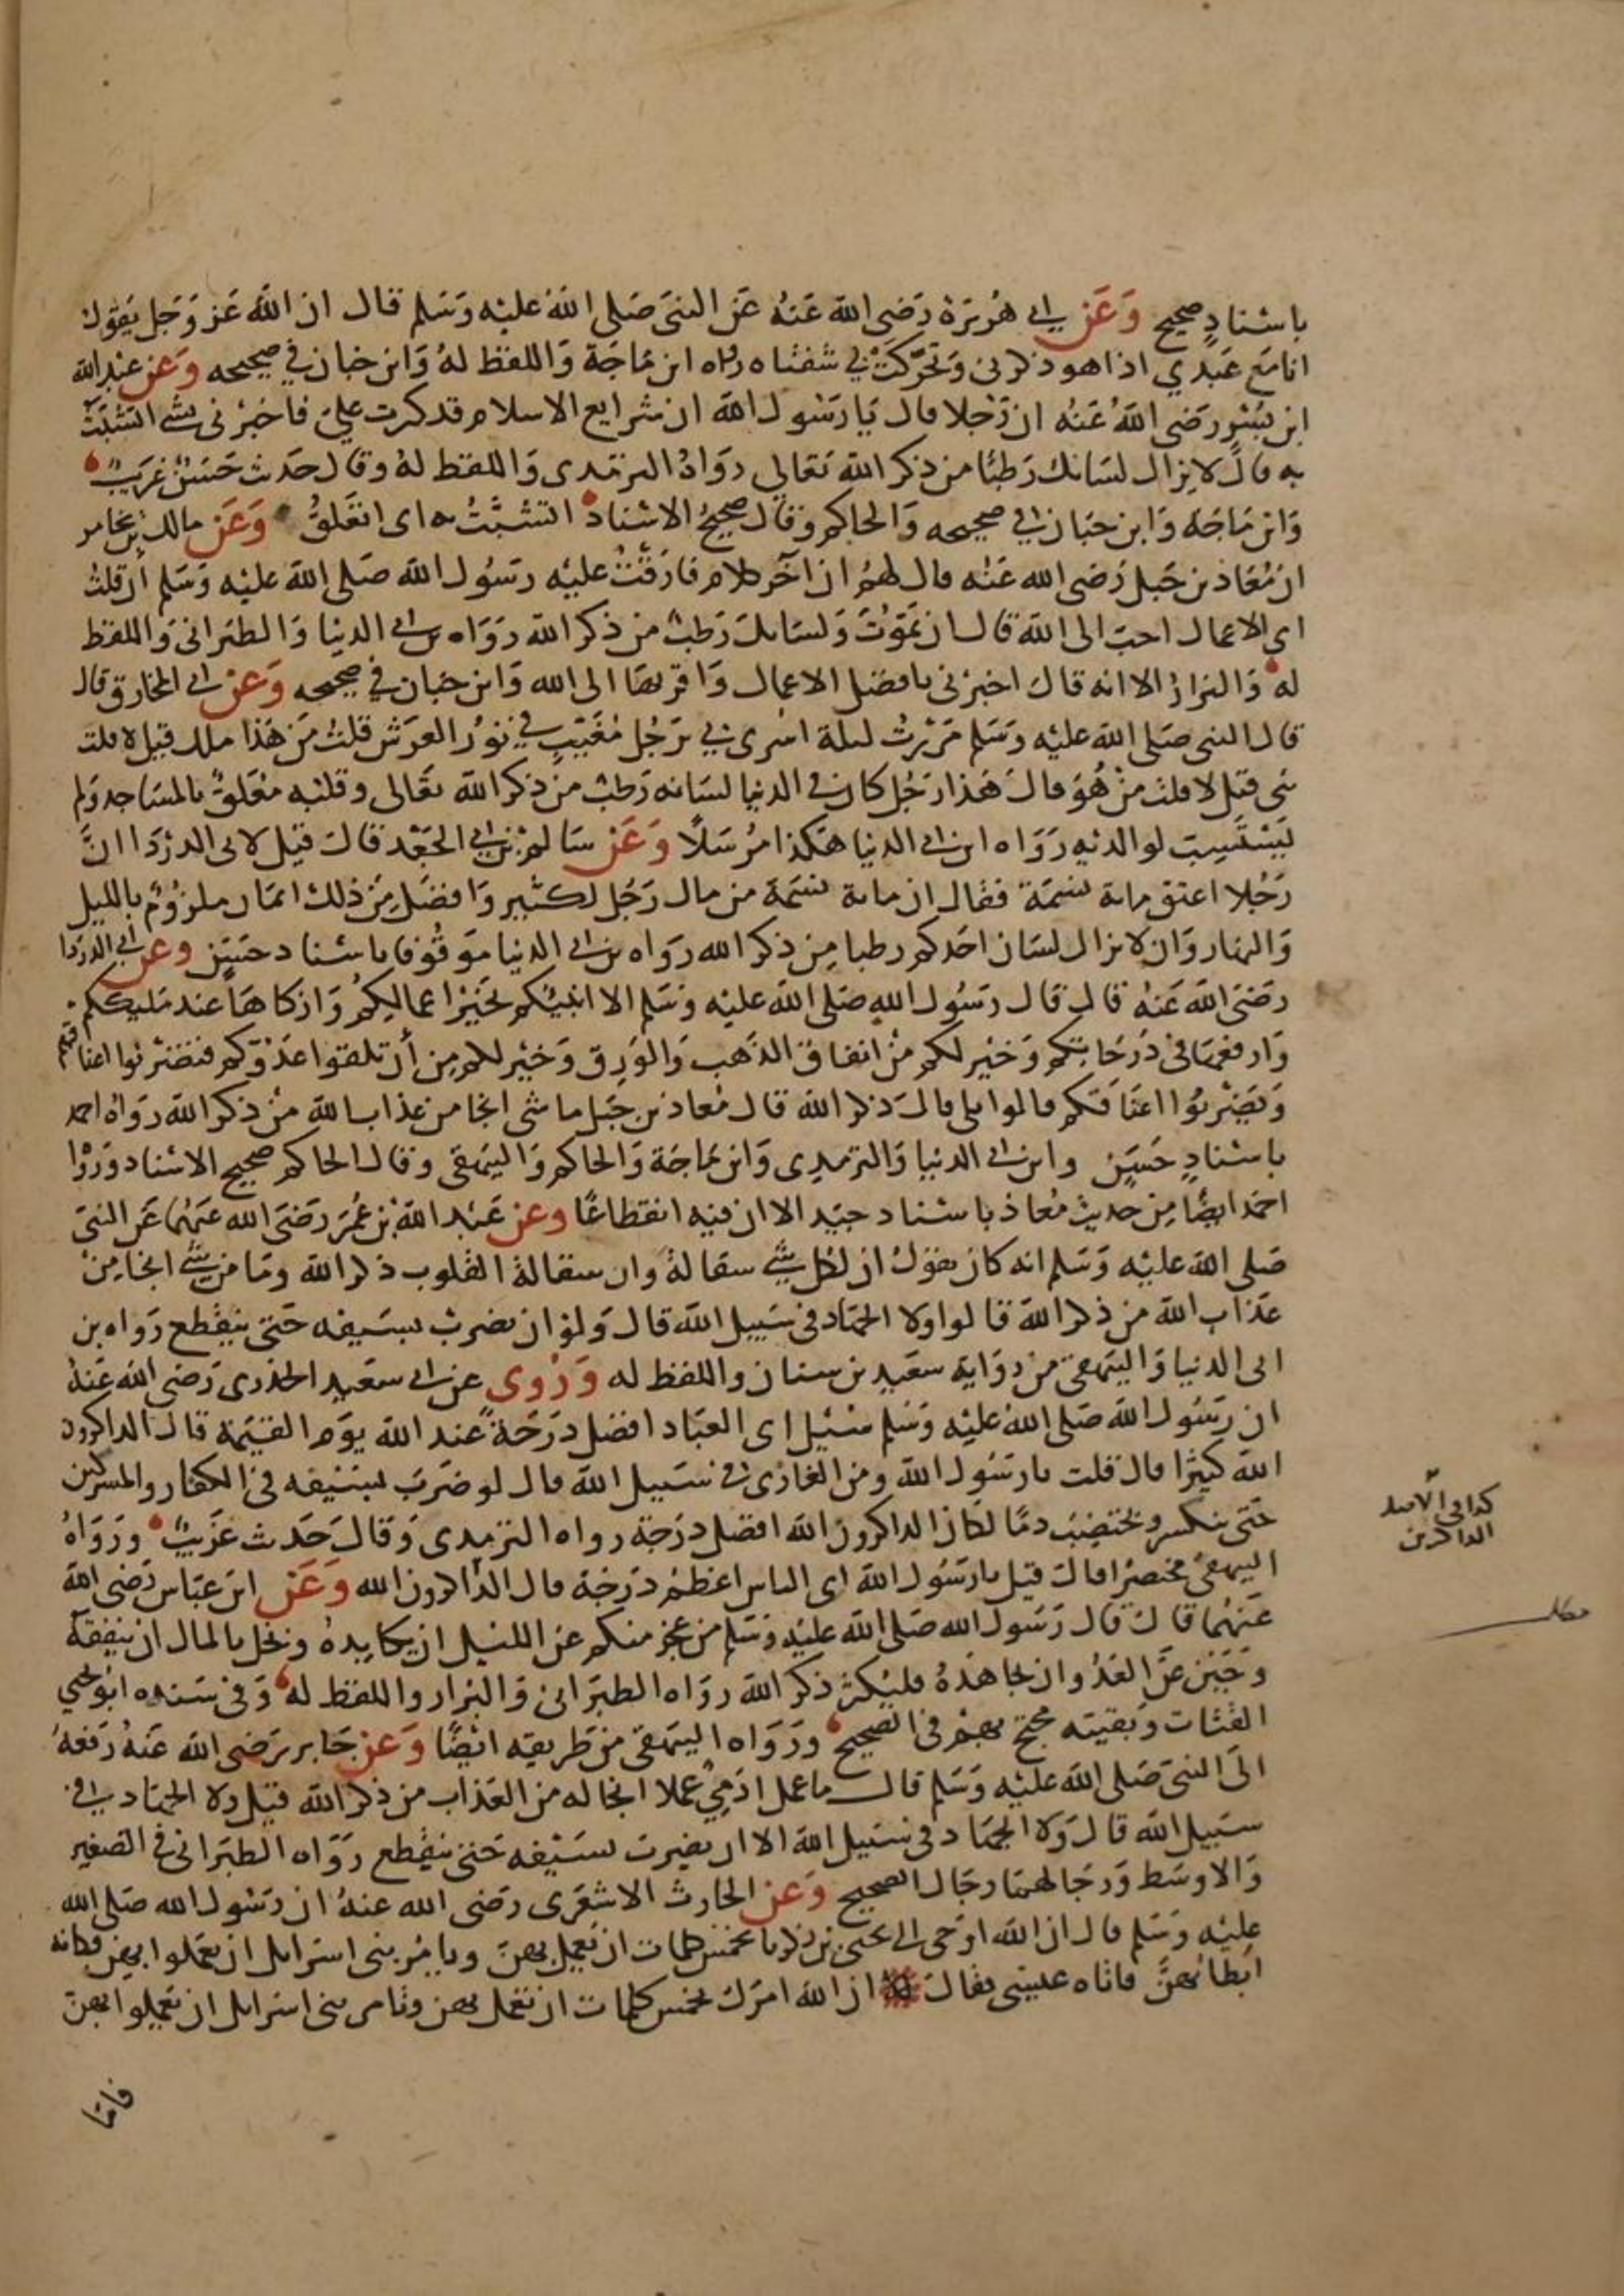 باسنادٍ صحيح وَعَن ابي هُرَيرَة رَضى الله عَنهُ عَن النبىّ صَلى الله عليْه وَسَلم قال ان الله عَز وَجَل يَقول
انا مَع عَبدي اذا هو ذكرنى وَتحرّكت بي شفتاه رواه ابن مَاجَة وَاللفظ لهُ وَابن حبان في صحيحه وَعَن عبد الله
ابن بُسْر رَضى اللهُ عَنهُ ان رَجلا قال يَا رَسُول الله ان شرايع الاسلام قد كثرت عليَ فاخبرْنى بشي اتشبَّث
به قالَ لا يزال لسَانك رَطبًا من ذكر الله تعَالي رَوَاهُ الترمذى وَاللفظ لهُ وقال حَديث حَسَنٌ غرَيبٌ
وَابن مَاجَه وَابن حبَان في صحيحه وَالحاكم وقال صحيحُ الاسْناد اتشبَّثُ به اى اتعَلقُ وَعَن مالك بن يخامر
ان مُعَاذ بن جَبل رَضى الله عَنه قال لهُم ان آخر كلام فارَقتُ عليْه رسُول الله صَلى الله عليْه وَسَلم ان قلتُ
اي الاعمال احبّ الى الله قال ان تمَوُتَ وَلسَانك رَطبٌ من ذكر الله رَوَاه بن ابي الدنيا وَالطبَرانى وَاللفظ
له وَالبزارُ الا انه قال اخبرْنى بافضل الاعمال وَاقربهَا الى الله وَابن حبان في صحيحه وَعَنْ ابي المخارق قال
قال النبى صَلى الله عليْه وَسَلم مَرَرْتُ ليلة اسْرى بي برَجُل مُغَيَّبٍ في نوُر العَرَش قلتُ مَن هَذا ملك قيل لا قلت
نبى قيل لا قلت منْ هُوَ قالَ هَذا رَجُل كان في الدنيا لسَانه رَطبٌ من ذكر الله تعَالى وقلبْه مُعَلقٌ بالمسَاجد وَلم
يَسْتسِب لوالديْه رَوَاه ابن ابي الدنيا هَكذا مُرسَلًا وَعَنْ سَالم بن ابي الجَعْد قالَ قيل لابى الدرْدَا انَّ
رَجُلا اعتق ماية نسَمَة فقال ان ماية نسَمَة من مال رَجُل لكثير وَافضَل مِن ذلك ايمَان ملزُومٌ بالليل
وَالنهَار وَان لا يزال لسَان احَدكم رطبا مِن ذكر الله رَواه بن ابي الدنيا مَوقوفا باسْناد حسَن وعن ابي الدردا
رَضىَ الله عَنهُ قال قال رسُول اللهِ صَلى الله عليْه وَسَلم الا انبئكم بخَيْر اعمالِكمُ وَازكاهَا عند مَليْككم
وَارفعهَا فى دَرَجَاتكم وَخيْر لكم منْ انفاق الذَهب وَالوَرِق وَخَيْر لكم مِن أن تلقوا عَدُوّكم فتضْربُوا اعناقهم
وَيَضرْبُوا اعنَاقكم قالوا بلى قالَ ذكر الله قال مُعاذ بن جَبل ما شى انجا من عَذاب الله مِنْ ذكر الله رَوَاهُ احمد
باسْنادٍ حَسَنٍ وابن ابي الدنيا وَالترمدى وَابن مَاجَة وَالحاكم وَالبيَهقى وقال الحاكم صحيح الاسْناد وَرَوَا
احمَد ايضًا مِن حديث مُعاذ باسْناد جيّد الا ان فيه انقطاعًا وعن عَبْد الله بْن عُمَر رَضىَ الله عَنهُما عَن النبىّ
صَلى الله عليْه وَسَلم انه كان يقول ان لكل شي سقالةً وان سقالة القلوب ذكر الله ومَا من شي انجا مِنْ
عَذاب الله من ذكر الله قالوا ولا الجهَاد في سَبيل الله قال وَلوْ ان يضربْ بسَيفه حَتى ينقطع رَواه بن
ابى الدنيا وَالبيَهقى من روَاية سعَيد بن سنان واللفظ له وَرُوى عن ابي سعَيد الخدرى رَضى الله عَنهُ
ان رَسُول الله صَلى الله عليْه وَسَلم سُئل اى العبَاد افضل درَجةً عند الله يوَم القيَمَة قال الذاكرون
الله كثيرًا قال قلت يا رسُول الله ومن الغازى في سَبيل الله قال لو ضَرَبَ بسَيْفه في الكفار والمشركين
حَتى ينكسر ويختضِبَ دمًا لكان الذاكرون الله افضل درَجة رواه الترمدى وَقالَ حَديث غرَيبٌ وَرَوَاهُ
البيهقىُ مختصرًا قال قيل يا رَسُول الله اى الناس اعظمُ درَجَة قال الذاكرون الله وَعَن ابن عبَاس رَضى الله
عَنهُما قال قال رَسُول الله صَلى الله عليْه وَسَلم من عجز منكم عن الليْل ان يكابدهُ وبخل بالمال ان ينفقهُ
وجَبَن عَن العَدُو ان يجاهدهُ فليُكثر ذكر الله رواه الطبَرانى وَالبزار واللفظ له وَفى سَنده ابوُ يحيي
القتات وَبقيته محتج بهم فى الصحيح وَرَوَاه البيهقى من طَريقه ايْضًا وَعَن جَابر رَضى الله عَنهُ رَفعَهُ
الى النبىّ صَلى الله عليْه وَسَلم قال ما عمل ادَمِيٌ عملا انجا له من العَذاب من ذكر الله قيل ولا الجهَاد في
سبَيل الله قال وَلا الجهَاد في سَبيل الله الا ان يضرب بسَيْفه حَتى ينقطع رَوَاه الطبَرانى في الصَغير
وَالاوسَط وَرجَالهمَا رجَال الصحيح وَعَن الحارث الاشعَرى رضى الله عنهُ ان رَسُول الله صَلى الله
عليْه وَسَلم قال ان الله اوْحى الى يحيىَ بن زكريا بخمس كلمات ان يعمل بهنّ ويامُر بنى اسرايل ان يعمَلوا بهن فكانه
ابَطا بهنَّ فاتاه عيسى فقال ان الله امرَك بخمس كلمات ان تعمل بهن وتامر بنى اسرايل ان يعَملوا بهن
فامّا
كذا في الاصل
الذاكرين